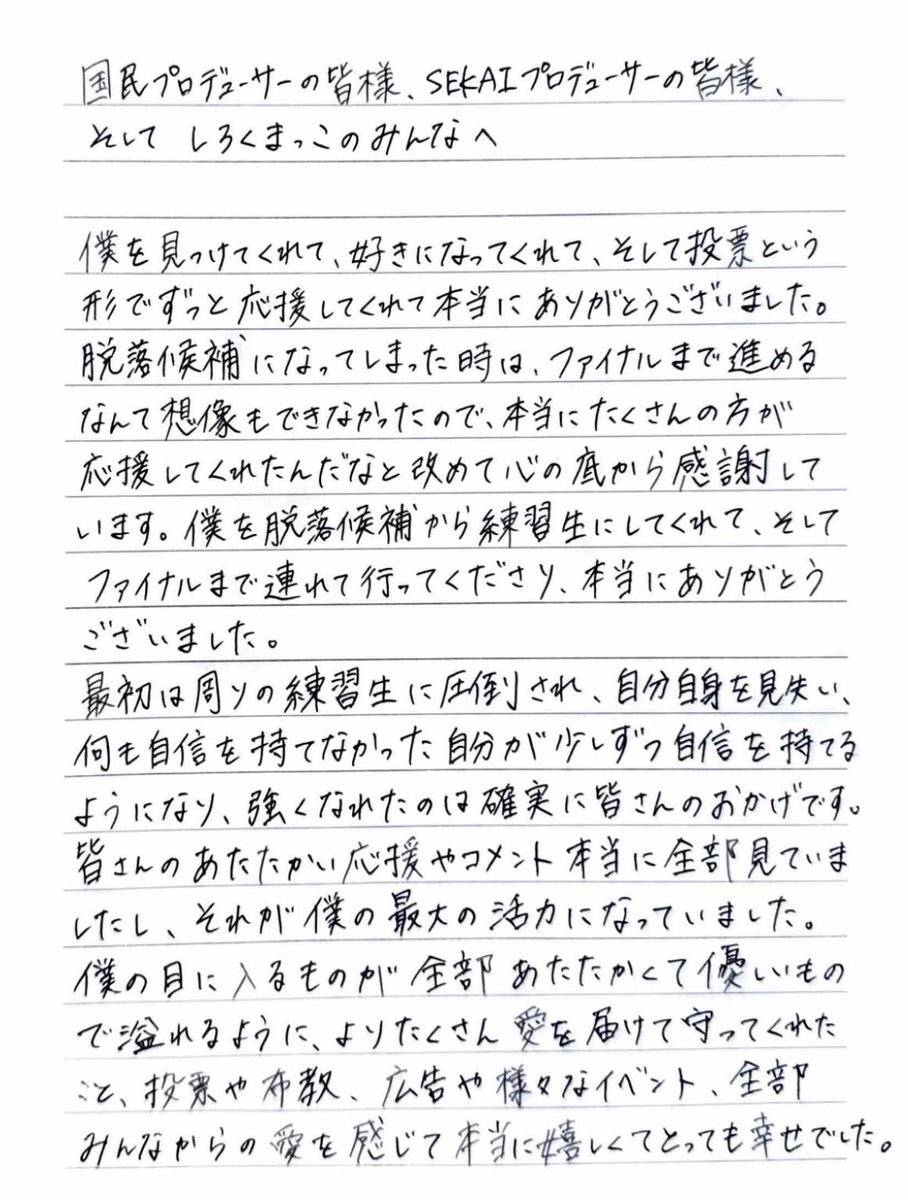 国民プロデューサーの皆様、SEKAIプロデューサーの皆様、
そして しろくまっこのみんなへ
僕を見つけてくれて、好きになってくれて、そして投票という
形でずっと応援してくれて本当にありがとうございました。
脱落候補になってしまった時は、ファイナルまで進める
なんて想像もできなかったので、本当にたくさんの方が
応援してくれたんだなと改めて心の底から感謝して
います。僕を脱落候補から練習生にしてくれて、そして
ファイナルまで連れて行ってくださり、本当にありがとう
ございました。
最初は周りの練習生に圧倒され、自分自身を見失い、
何も自信を持てなかった自分が少しずつ自信を持てる
ようになり、強くなれたのは確実に皆さんのおかげです。
皆さんのあたたかい応援やコメント本当に全部見ていま
したし、それが僕の最大の活力になっていました。
僕の目に入るものが全部あたたかくて優しいもの
で溢れるように、よりたくさん愛を届けて守ってくれた
こと、投票や布教、広告や様々なイベント、全部
みんなからの愛を感じて本当に嬉しくてとっても幸せでした。